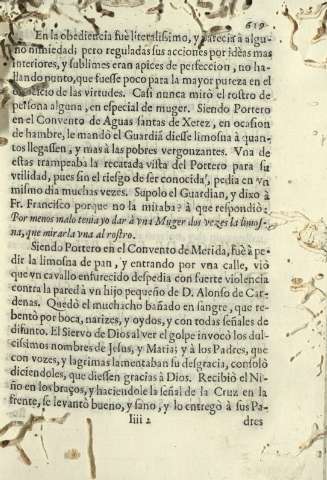 619
En la obediencia fuè literalissimo, y parecia à algu-
no nimiedad; pero reguladas sus acciones por idèas mas
interiores, y sublimes eran apices de perfeccion, no ha-
llando punto, que fuesse poco para la mayor pureza en el
exercicio de las virtudes. Casi nunca mirò el rostro de
persona alguna, en especial de muger. Siendo Portero
en el Convento de Aguas santas de Xerez, en ocasion
de hambre, le mandò el Guardiã diesse limosna à quan-
tos llegassen, y mas à las pobres vergonzantes. Vna de
estas trampeaba la recatada vista del Portero para su
utilidad, pues sin el riesgo de ser conocida, pedia en vn
mismo dia muchas vezes. Supolo el Guardian, y dixo à
Fr. Francisco porque no la miraba? à que respondiò:
Por menos malo tenia yo dar à vna Muger dos vezes la limos-
na, que mirarla vna al rostro.
Siendo Portero en el Convento de Merida, fuè à pe-
dir la limosna de pan, y entrando por vna calle, viò
que vn cavallo enfurecido despedia con fuerte violencia
contra la pared à vn hijo pequeño de D. Alonso de Car-
denas. Quedò el muchacho bañado en sangre, que re-
bentò por boca, narizes, y oydos, y con todas señales de
difunto. El Siervo de Dios al ver el golpe invocò los dul-
cissimos nombres de Jesus, y Maria; y à los Padres, que
con vozes, y lagrimas lamentaban su desgracia, consolò
diciendoles, que diessen gracias à Dios. Recibiò el Ni-
ño en los braços, y haciendole la señal de la Cruz en la
frente, se levantò bueno, y sano, y lo entregò à sus Pa-
Iiii 2 dres